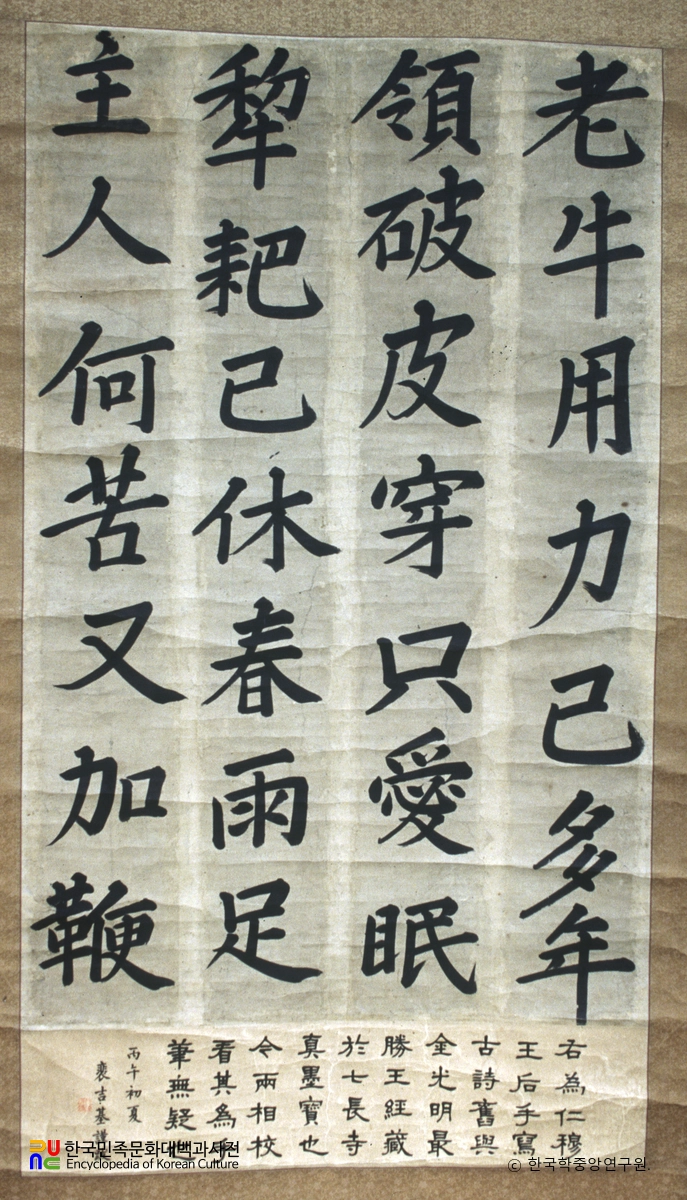 老牛用力已多年
領破皮穿只愛眠
犂耙已休春雨足
主人何苦又加鞭
右為仁穆
王后手寫
古詩舊與
金光明最
勝王經藏
於七長寺
真墨寶也
今兩相校
看其為
筆無疑
丙午初夏
裵吉基謹
한국민족문화대백과사전
Encyclopedia of Korean Culture
© 한국학중앙연구원.